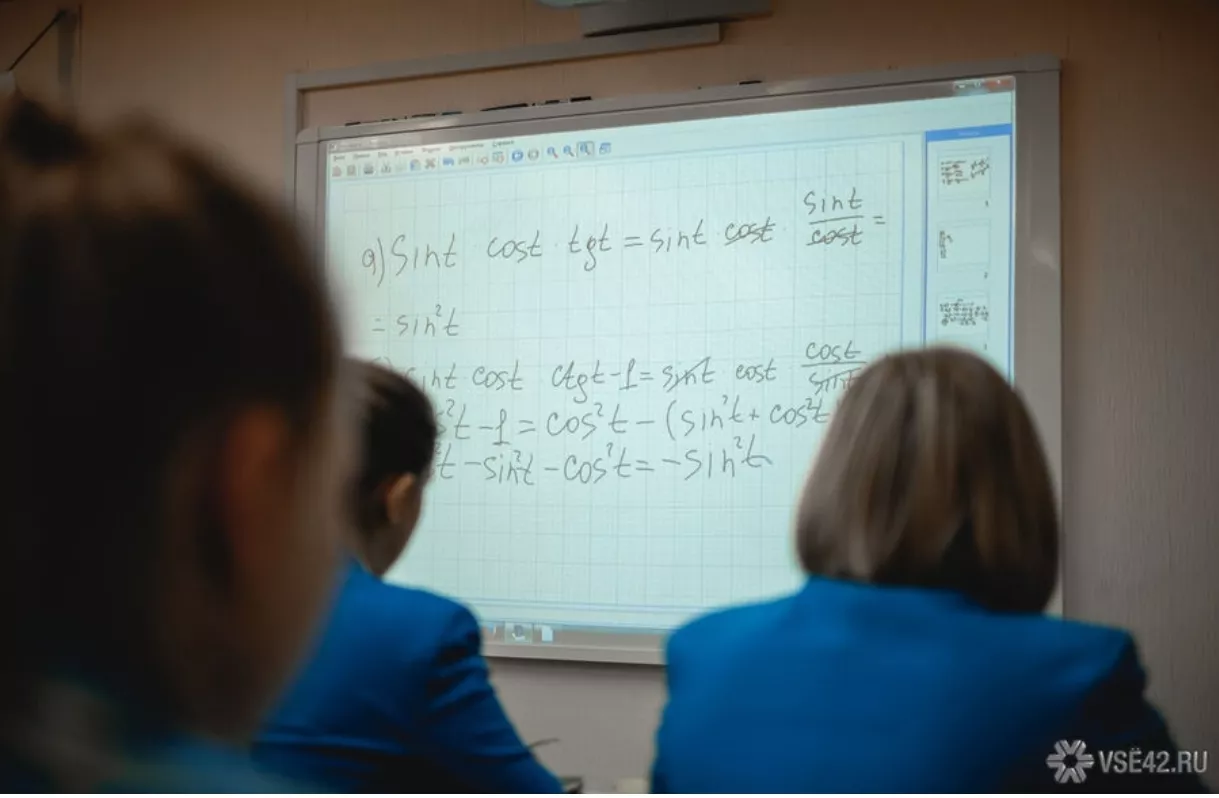 а) sint cost · tgt = sint · cost · sint/cost =
= sin²t
sint cost ctgt - 1 = sint cost cost/sint
²t - 1 = cos²t - (sin²t + cos²t
²t - sin²t - cos²t = - sin²t
VSЁ42.RU